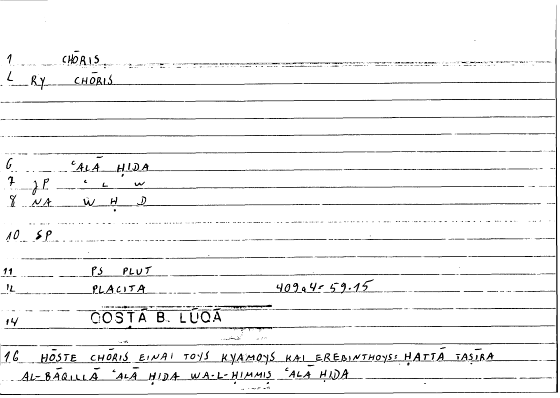 1 CHŌRIS
L RY CHŌRIS
6 ʿALĀ ḤIDA
7 JP ʿ L W
8 NA W Ḥ D
10 SP
11 PS PLUT
12 PLACITA 409a4- 59.15
14 QOSTĀ B. LUQĀ
16 HŌSTE CHŌRIS EINAI TOYS KYAMOYS KAI EREBINTHOYS: ḤATTĀ TAṢĪRA
AL-BĀQILLĀ ʿALĀ ḤIDA WA-L-ḤIMMIṢ ʿALĀ ḤIDA